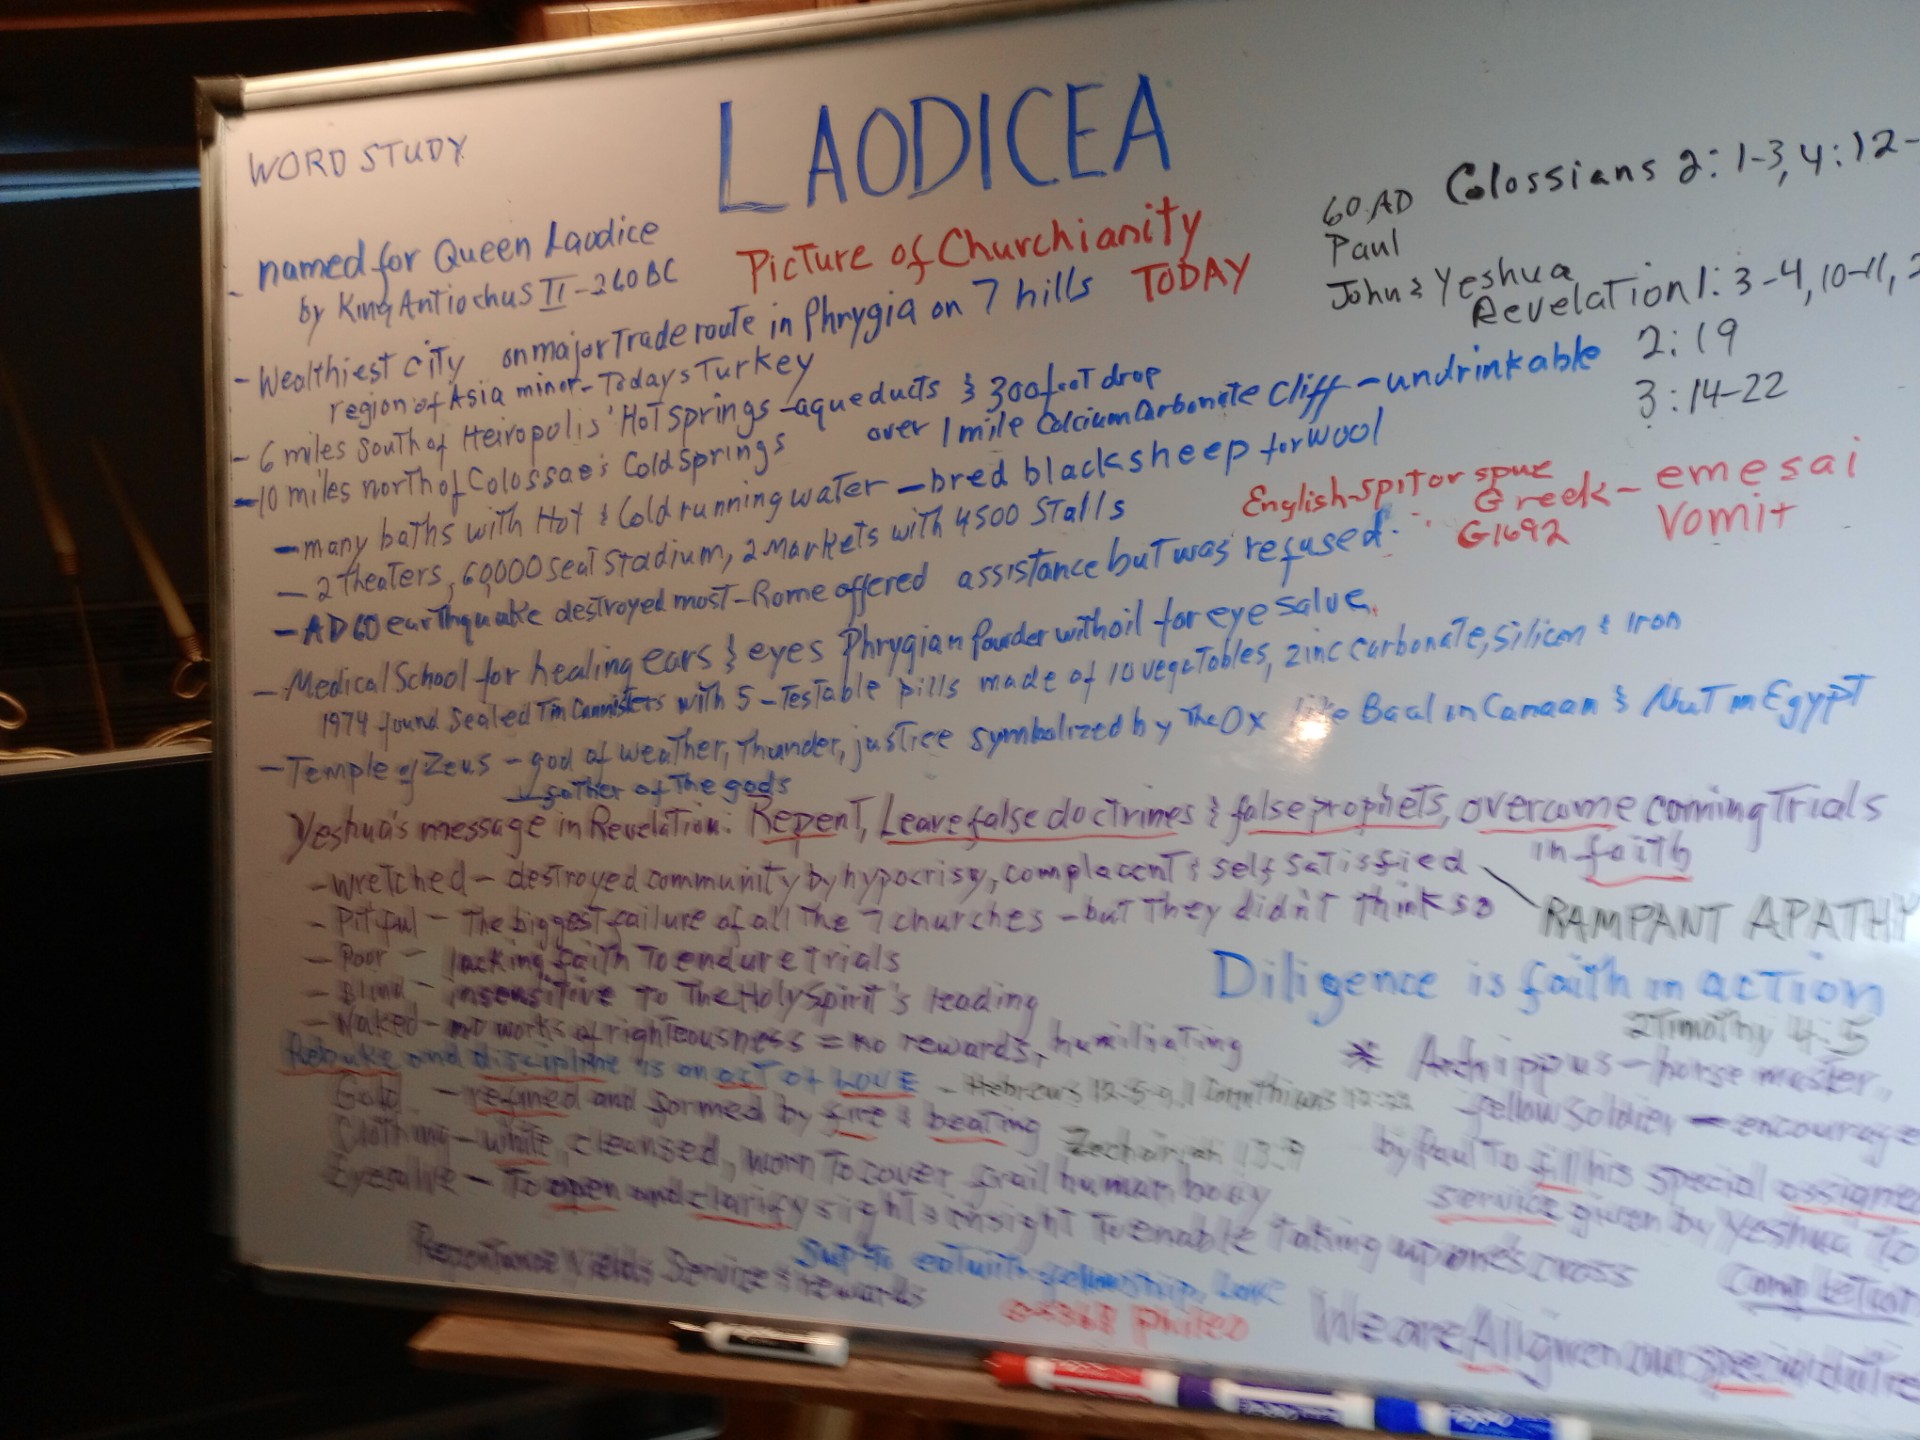 WORD STUDY
LAODICEA
Picture of Churchianity
TODAY
60 AD Colossians 2:1-3, 4:12-
Paul
John & Yeshua
Revelation 1:3-4, 10-11,
2:19
3:14-22
- named for Queen Laodice
by King Antiochus II - 260 BC
- Wealthiest city on major Trade route in Phrygia on 7 hills
region of Asia minor - Todays Turkey
- 6 miles south of Heiropolis' Hot Springs - aqueducts & 300 foot drop
over 1 mile Calcium Carbonate Cliff - undrinkable
- 10 miles north of Colossae's Cold Springs
- many baths with Hot & Cold running water - bred black sheep for wool
- 2 Theaters, 60,000 seat stadium, 2 Markets with 4500 Stalls
English - spit or spue
Greek - emesai
G1692 Vomit
- AD 60 earthquake destroyed most - Rome offered assistance but was refused.
- Medical School for healing ears & eyes Phrygian Powder with oil for eye salve.
1974 found Sealed Tin Cannisters with 5 - Testable pills made of 10 vegeTables, zinc carbonate, silicon & Iron
- Temple of Zeus - god of weather, Thunder, justice symbolized by The Ox like Baal in Canaan & Nut in Egypt
father of The gods
Yeshua's message in Revelation: Repent, Leave false doctrines & false prophets, overcome coming Trials
in faith
- wretched - destroyed community by hypocrisy, complacent & self satisfied
RAMPANT APATHY
- Pitiful - The biggest failure of all The 7 churches - but They didn't think so
- Poor - lacking faith To endure trials
- Blind - insensitive To The Holy Spirit's leading
- Naked - no works of righteousness = no rewards, humiliating
Rebuke and discipline is an act of LOVE - Hebrews 12:5-
Gold - refined and formed by fire & beating Zechariah 13:9
Clothing - white, cleansed, worn To cover frail human body
Eyesalve - To open and clarify sight & insight To enable taking up one's cross
Repentance Yields Service & rewards
Sup - To eat with fellowship, Love
Phileo
Diligence is faith in action
2 Timothy 4:5
* Archippus - horse master,
fellow soldier - encourage
by Paul To fill his special assigned
service given by Yeshua To
completion
We are All given our special duties